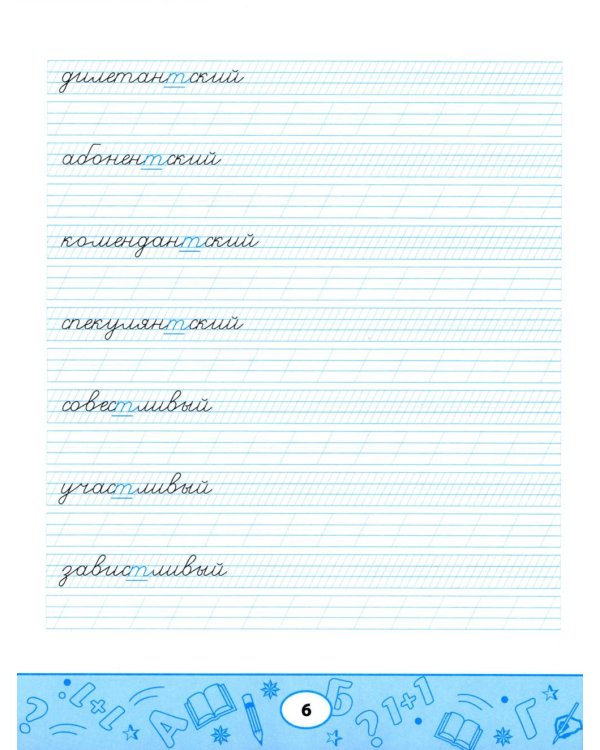 дилетантский
абонентский
комендантский
спекулянтский
совестливый
участливый
завистливый
? 1+1 А 6 Б ? 1+1 Г